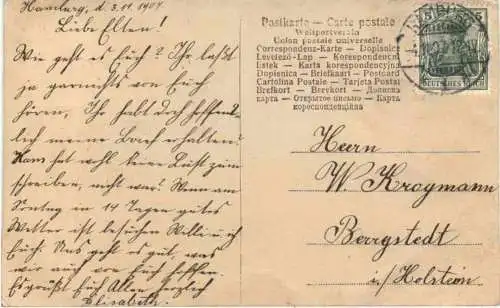 Hamburg, d. 3.11.1907
Liebe Elten!
Wie geht es Euch? Ihr laßt
ja garnichts von Euch
hören, Ihr habt doch hoffent-
lich meine Briefe erhalten?
Hans hat wohl keine Lust zum
schreiben, nicht war? Wenn am
Sontag in 14 Tagen gutes
Wetter ist besuchen Willi u. ich
Euch. Uns geht es gut, was
wir auch von Euch hoffen.
Es grüßt Euch Allen herzlich
Elisabeth.
Postkarte – Carte postale
Weltpostverein
Union postale universelle
Correspondenz-Karte – Dopisnice
Levelező-Lap – Korespondencni
Lístek – Karta korespondencyjna
Dopisnica – Briefkaart – Postcard
Cartolina Postale – Tarjeta Postal
Brefkort – Brevkort – Дописна
карта – Открытое письмо – Карта
кореспонденциона
5 5
DEUTSCHES REICH
Herrn
W Krogmann
Bergstedt
i/Holstein